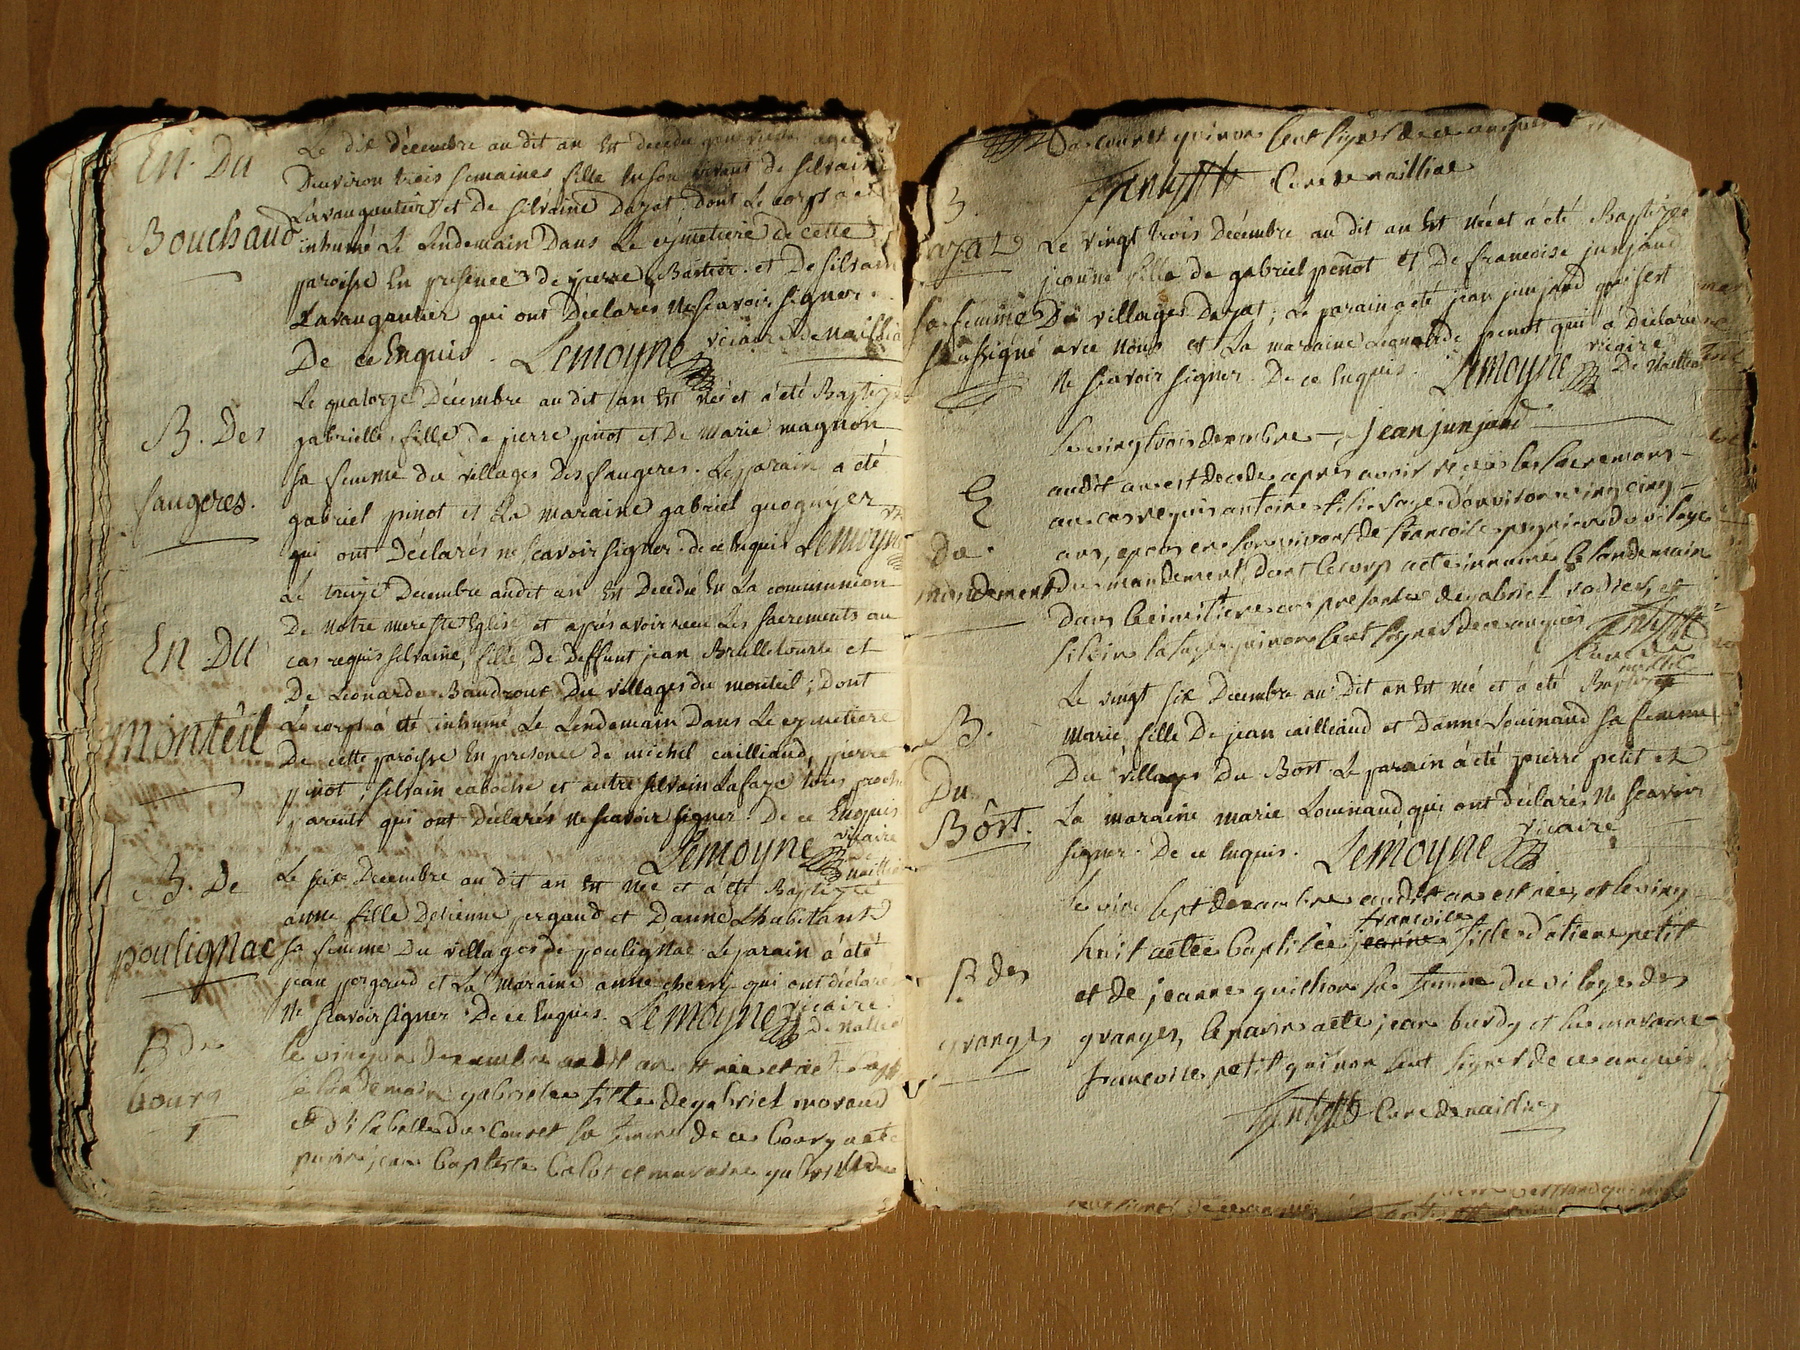 En. Du
Bouchaud
Le dix décembre au dit an Est decedé
D'environ trois semaines fille en son vivant de silvain
Lavaugautier et De silvaine Dazat, dont Le corps a été
inhumé Le Lendemain Dans Le cymetiere de cette
paroisse En presence de pierre Bastier. et De silvain
Lavaugautier qui ont Déclarés ne scavoir signer.
De ce Enquis. Lemoyne vicaire de Naillia
B. Des
faugeres.
Le quatorze Décembre au dit an Est née et a été Baptizé
gabrielle, fille de pierre pinot et De Marie magnon
sa femme du villages Des faugeres. Le parain a été
gabriel pinot et La maraine gabriel
qui ont Déclarés ne scavoir signer. de ce Enquis Lemoyne
En Du
Monteil
Le treize Decembre audit an Est Decedé En La communion
De Notre mere ste Eglise et après avoir reçu Les sacrements au
cas requis silvaine, fille De Deffunt jean Brulletourte et
De Leonarde Baudzout Du villages du monteil; Dont
Le corps à été inhumé Le Lendemain Dans Le cymetiere
De cette paroisse En presence de michel cailliaud, pierre
pinot, silvain caboche et autre silvain Lafaye tous proche
parents, qui ont Déclarés ne scavoir signer. De ce Enquis
Lemoyne vicaire
B. De
poulignac
Le seize Decembre au dit an Est Née et a été Baptizée
anne fille D'etienne pergaud et D'anne Lhabitant
sa femme Du villages de poulignac Le parain à été
jean pergaud et La Maraine anne cherry qui ont déclaré
Ne scavoir signer. De ce Enquis. Lemoyne vicaire.
B du
bourg
le vingun decembre audit an est née et aete bapt
le landemain gabrielle fille de gabriel moraud
et d'isabelle du couret sa femme de ce bourg a ete
parin jean baptiste balot et maraine gabrielle
du couret qui non seut signer de ce anquis
cure de nailliac
B.
Dazat
Le vingt trois Décembre au dit an Est Née et a été Baptizée
jeanne fille de gabriel penot et De francoise junjaud
sa femme Du villages Dazat; Le parain a été jean junjaud qui s'est
soussigné avec Nous et La maraine Léonarde penot qui à Déclaré
Ne scavoir signer. De ce Enquis. Lemoyne vicaire De Naillia
jean junjaud
E
Du
mandement
le vingtrois decembre
audit an est decede apres avoir reçus les sacremans
au cas requis antoine filie age d'anviron vingcinq
ans, epous en son vivant de francoise du vilage
du mandement, dont le corp a ete innumé le landemain
dans le cimitiere en presance de gabriel radier, et
silvin lafaye qui non seut signer de ce anquis
cure de naillac
B.
Du
Bôrt.
Le vingt six Decembre au Dit an Est née et a été Baptizée
Marie fille De jean cailliaud et D'anne Louinaud sa femme
Du villages Du Bôrt Le parain à été pierre petit et
La maraine marie Louinaud qui ont déclarés Ne scavoir
signer. De ce Enquis. Lemoyne vicaire
B des
granges
le vint sept decembre audit an est née, et le ving
huit a ete baptisée jeanne francoise fille d'etiene petit
et de jeanne guillion sa femme du vilage des
granges, le parin a ete jean burdy et la maraine
francoise petit qui non seut signer de ce anquis
cure de naillac